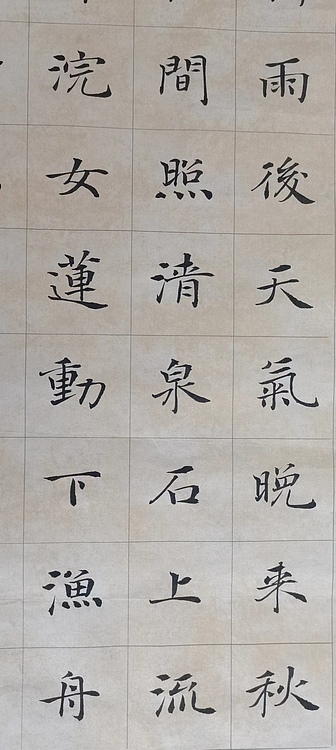 雨後天氣晚来秋
間照清泉石上流
浣女蓮動下漁舟